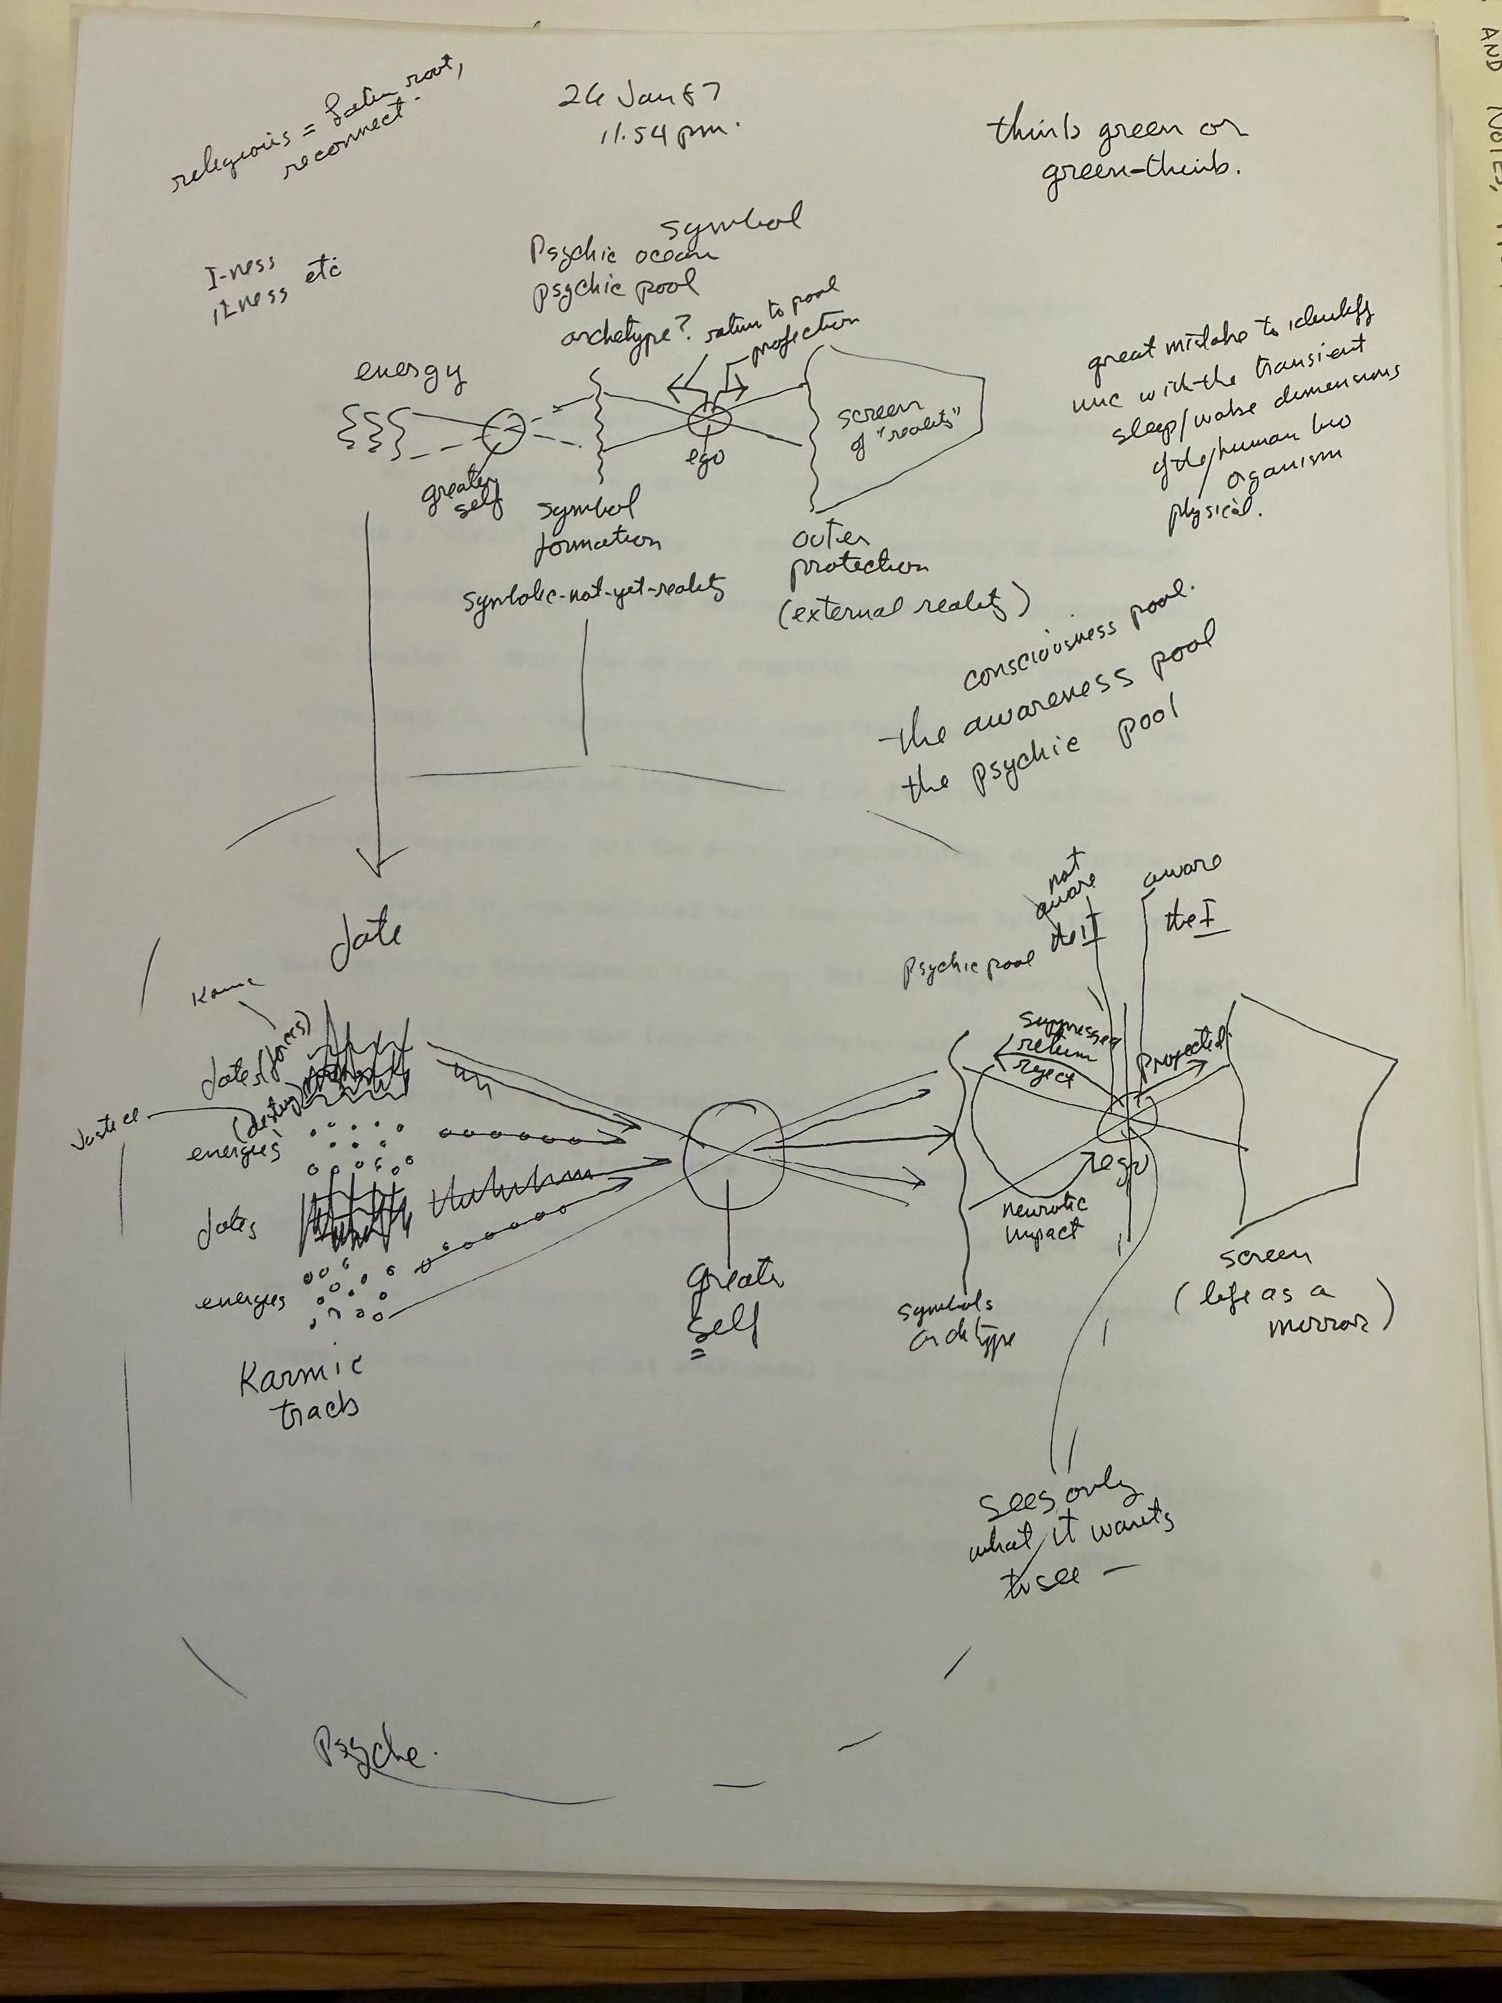 religious = Latin root,
reconnect.
26 Jan 87
11.54 pm.
think green or
green-think.
I-ness
itness etc
symbol
Psychic ocean
psychic pool
archetype? return to pool
projection
energy
greater
self
ego
screen
of "reality"
symbol
formation
symbolic-not-yet-reality
outer
protection
(external reality)
great mistake to identify
with the transient
sleep/wake dimensions
of the human bio
organism
physical.
consciousness pool.
the awareness pool
the psychic pool
fate
Karma
fates (forces)
(destiny
Justice
energies
fates
energies
Karmic
track
greater
self
not
aware
the I
aware
the I
Psychic pool
suppressed
return
reject
projected
ego
neurotic
impact
symbols
archtype
screen
(life as a
mirror)
sees only
what it wants
to see —
Psyche.
AND NOTES,